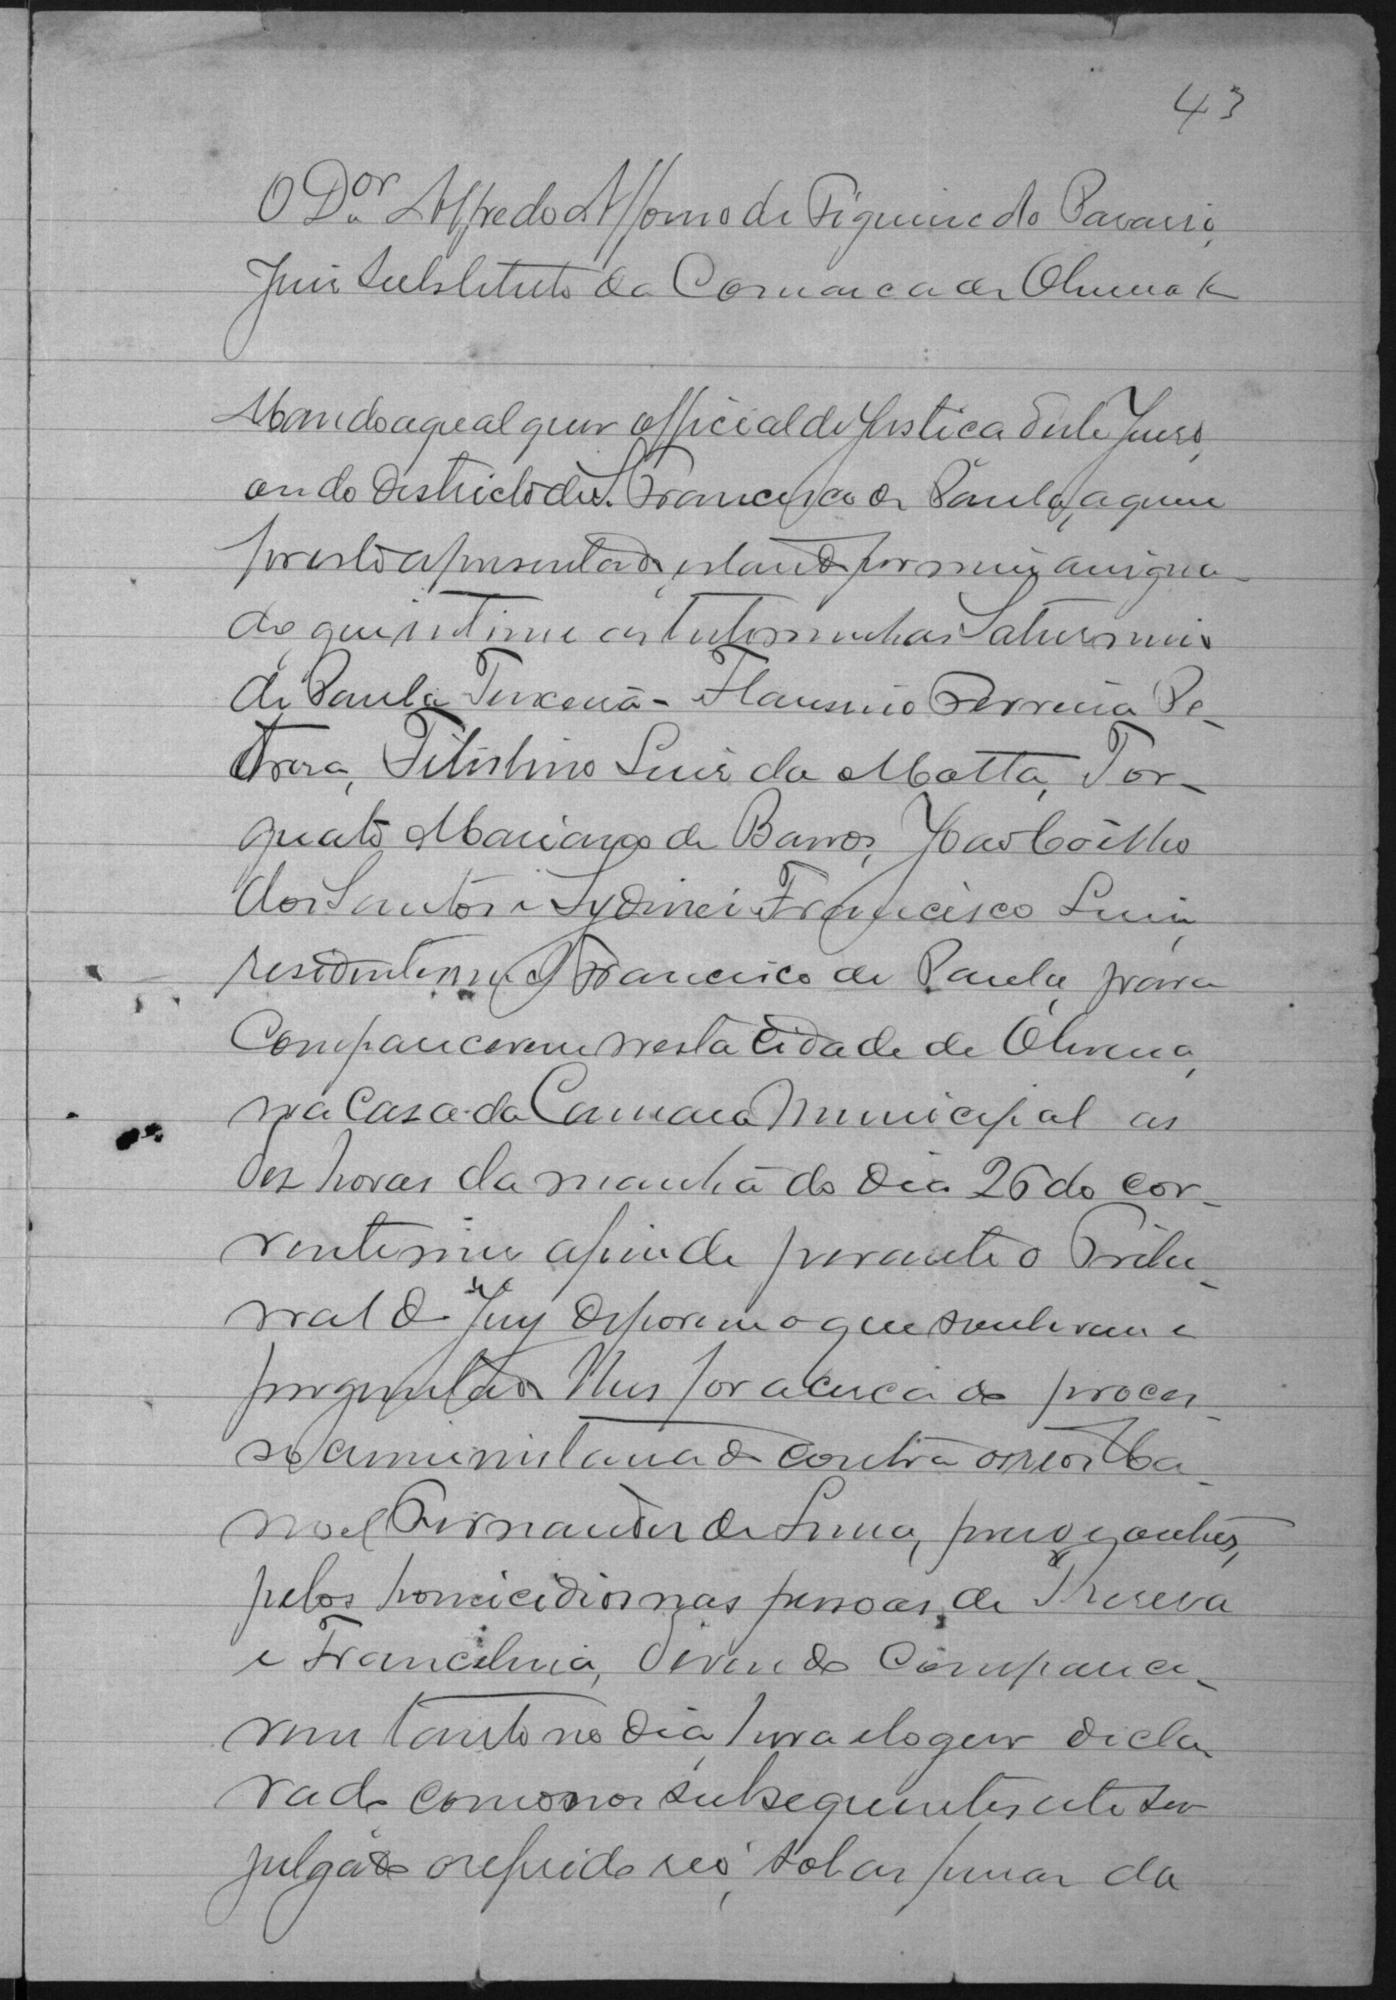 43
O D.or Alfredo Affonso de Figueiredo Pavarri,
Juis Substituto da Comarca de Oliveira &
Mando a qualquer official de Justica deste Juiso,
ou do districto de S. Francisco de Paula, a quem
for este apresentado, estando por mim assigna-
do, que intime as testemunhas Saturnino
de Paula Teixeira - Flausino Ferreira Pe-
droza, Filislino Luis da Motta, Tor-
quato Mariano de Barros, João Coêlho
dos Santos e Sydinei Francisco Luis,
residentes em S Francisco de Paula, para
Comparecerem nesta Cidade de Oliveira,
na Casa da Camara Municipal as
des horas da manhã do dia 26 do cor-
rente mes afim de perante o Tribu-
nal do Jury deporem o que souberem e
perguntado lhes for acerca do proces-
so crime instaurado contra o reo Ma-
noel Fernandes de Lima, preso
pelos homicidios nas pessoas de Theresa
e Francelina, devendo Comparece-
rem tanto no dia, hora e logar decla-
rado como nos subsequentes ate ser
julgado o referido reo, sob as penas da